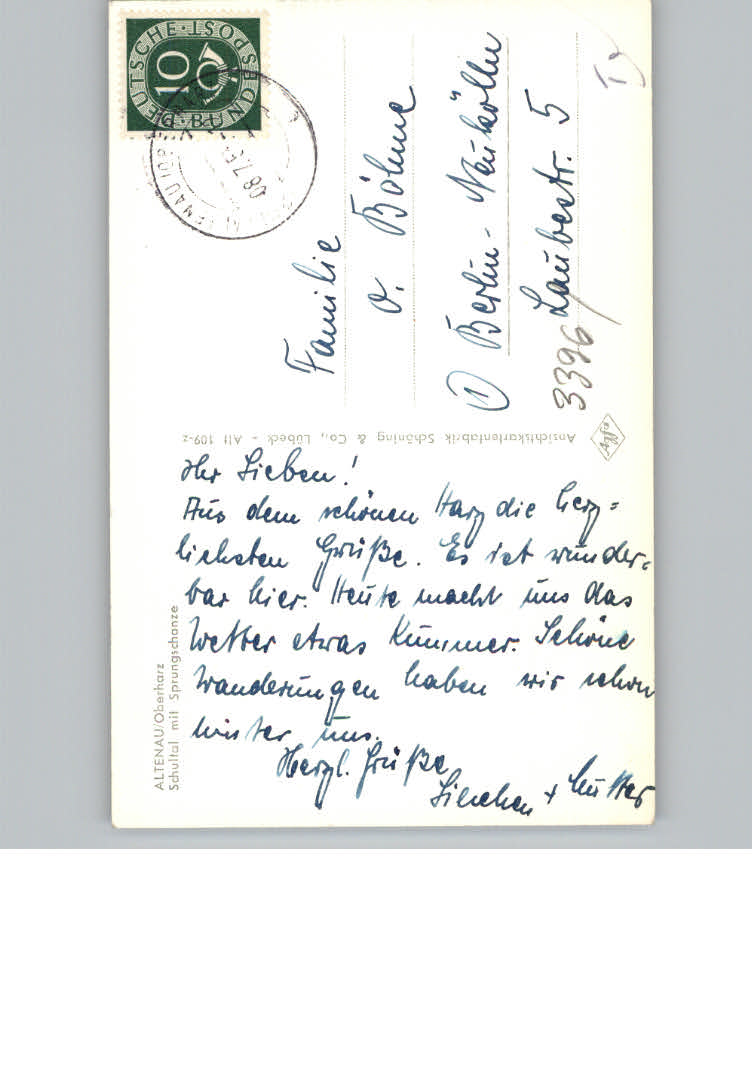 Ihr Lieben!
Aus dem schönen Harz die herz=
lichsten Grüße. Es ist wunder=
bar hier. Heute macht uns das
Wetter etwas Kummer. Schöne
Wanderungen haben wir schon
hinter uns.
Herzl. Grüße
Lienchen + Mutter
ALTENAU/Oberharz
Schultal mit Sprungschanze
Ansichtskartenfabrik Schöning & Co., Lübeck - Alt 109-z
DEUTSCHE BUNDESPOST
10
ALTENAU (OBERHARZ)
08.7.5
Familie
v. Böhme
① Berlin-Neukölln
Laubestr. 5
3396